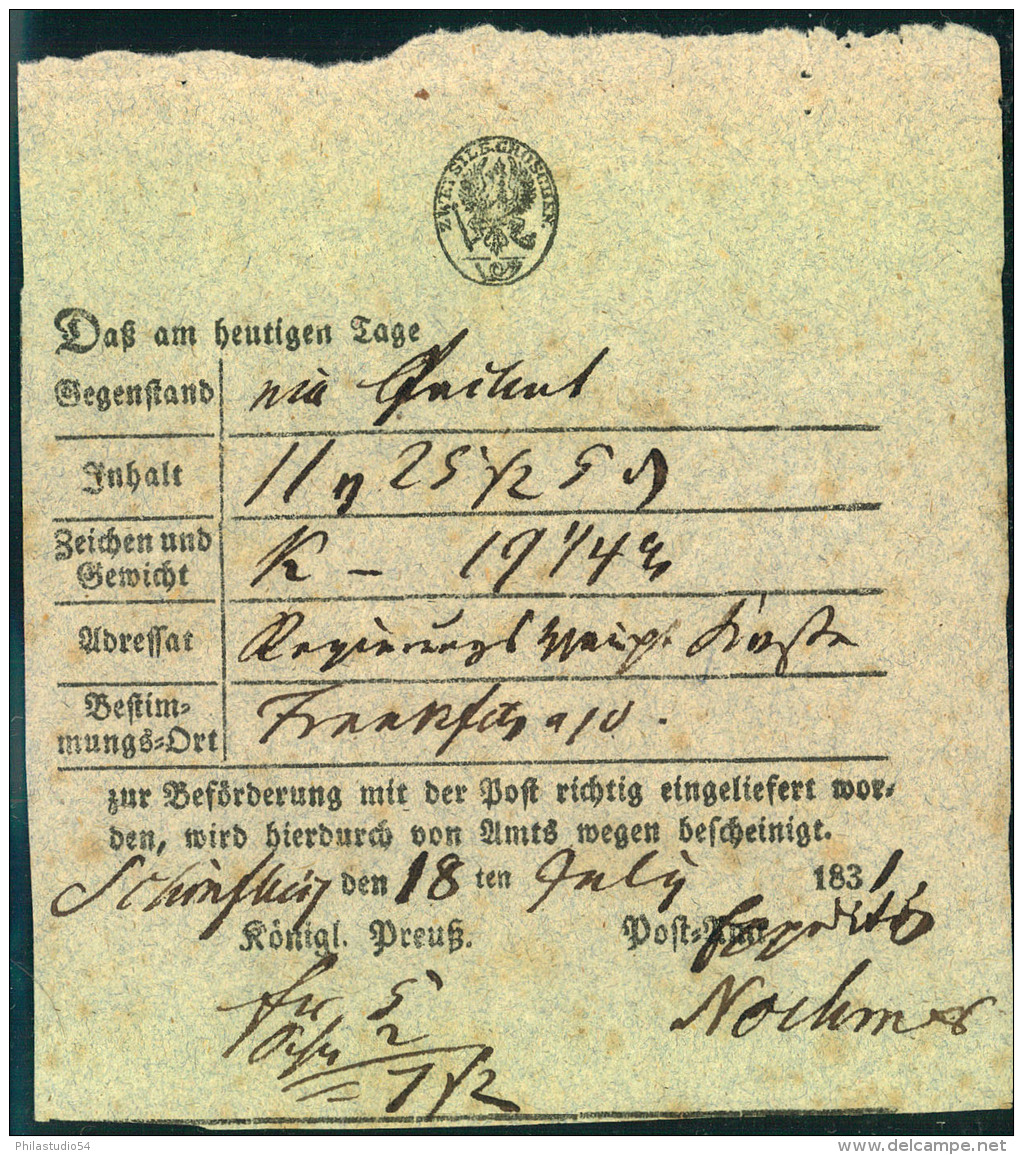 ZWEI SILB. GROSCHEN.
Daß am heutigen Tage
Gegenstand ein Packet
Inhalt 11 25 5
Zeichen und Gewicht K – 19 1/4
Adressat Regierungs Haupt Kasse
Bestim-
mungs-Ort Frankfurt a/O.
zur Beförderung mit der Post richtig eingeliefert wor-
den, wird hierdurch von Amts wegen bescheinigt.
den 18 ten July 1831
Königl. Preuß. Post-Amt Expedition
fr 5
2
7
Philastudio54
www.delcampe.net